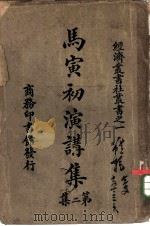 經濟叢書社叢書之一
馬寅初演講集
第二集
商務印書館發行